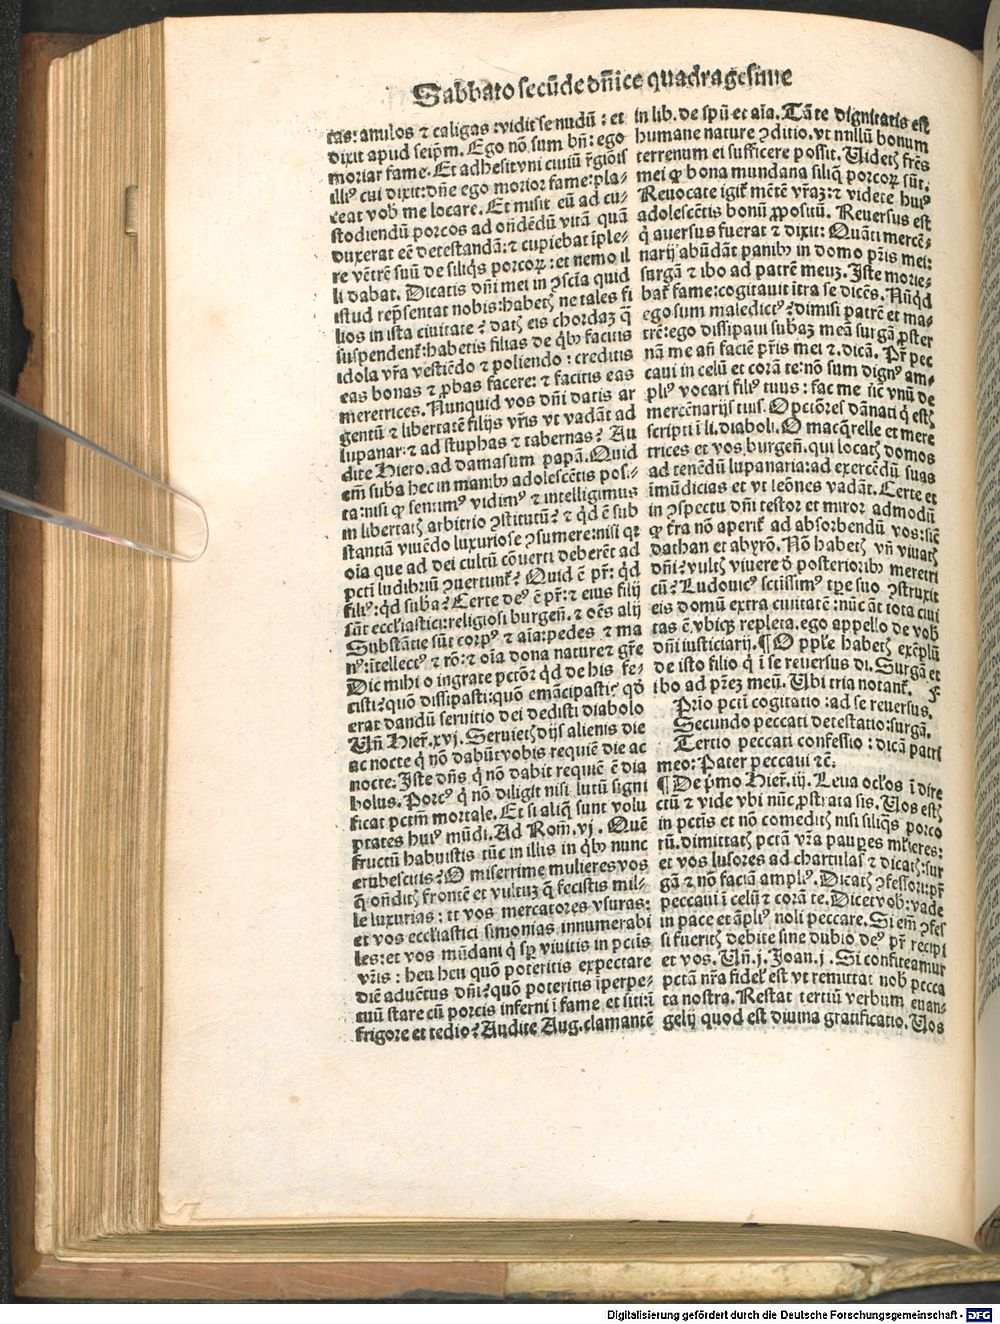 Sabbato secūde dñice quadragesime
cas: anulos ⁊ caligas: vidit se nudū: et
dixit apud seip̄m. Ego nō sum bñ: ego
moriar fame. Et adhesit vni ciuiū r̄giōis
illiꝰ cui dixit: dñe ego morior fame: pla-
ceat vob̄ me locare. Et misit eū ad cu-
stodiendū porcos ad oñdēdū vitā quā
duxerat eē detestandā: ⁊ cupiebat īple-
re vētrē suū de siliq̄s porcoꝝ: et nemo il
li dabat. Dicatis dñi mei in ꝯscīa quid
istud rep̄sentat nobis: habetꝭ ne tales fi
lios in ista ciuitate? datꝭ eis chordaꝫ q̄
suspendent̄: habetis filias de qͥbꝰ facitis
idola vr̄a vestiēdo ⁊ poliendo: creditis
eas bonas ⁊ ꝓbas facere: ⁊ facitis eas
meretrices. Nunquid vos dñi datis ar
gentū ⁊ libertatē filijs vr̄is vt vadāt ad
lupanar: ⁊ ad stuphas ⁊ tabernas? Au
dite Hiero. ad damasum papā. Quid
em̄ suba hec in manibꝰ adolescētis posi-
ta: nisi ꝙ senimꝰ vidimꝰ ⁊ intelligimus
in libertatꝭ arbitrio ꝯstitutū? ⁊ qͥd ē sub
stantiā viuēdo luxuriose ꝯsumere: nisi qꝛ
oīa que ad dei cultū cōuerti deberēt ad
pctī ludibriū ꝯuertunt̄? Quid ē pr̄: qͥd
filiꝰ: qͥd suba? Certe deꝰ ē pr̄: ⁊ eius filij
sūt ecclīastici: religiosi burgeñ. ⁊ oēs alij
Substātie sūt corpꝰ ⁊ aīa: pedes ⁊ ma
nꝰ: ītellectꝰ ⁊ rō: ⁊ oīa dona nature ⁊ gr̄e
Dic mihi o ingrate pctōr qͥd de his fe-
cisti? quō dissipasti: quō emācipasti? qͦd
erat dandū seruitio dei dedisti diabolo
Vñ Hier̄. xvj. Seruietꝭ dijs alienis die
ac nocte qͥ nō dabūt vobis requiē die ac
nocte: Iste dñs qͥ nō dabit requiē ē dia
bolus. Porcꝰ qͥ nō diligit nisi lutū signi
ficat pctm̄ mortale. Et si aliqͥ sunt volu
ptates huiꝰ mūdi. Ad Rom̄. vj. Quē
fructū habuistis tūc in illis in qͥbꝰ nunc
erubescitis? O miserrime mulieres vos
q̄ oñditꝭ frontē et vultuꝫ q̄ fecistis mil-
le luxurias: et vos mercatores vsuras:
et vos ecclīastici simonias innumerabi
les: et vos mūdani qͥ sꝑ viuitis in pctīs
vr̄is: heu heu quō poteritis expectare
diē aduētus dñi? quō poteritis īperpe-
tuū stare cū porcis inferni ī fame et siti: ī
frigore et tedio? Audite Aug. clamantē
in lib. de spū et aīa. Tāte dignitatis est
humane nature ꝯditio. vt nullū bonum
terrenum ei sufficere possit. Videtꝭ fr̄es
mei ꝙ bona mundana siliq̄ porcoꝝ sūt.
Reuocate igit̄ mētē vr̄aꝫ: ⁊ videte huiꝰ
adolescētis bonū ꝓpositū. Reuersus est
qͥ auersus fuerat ⁊ dixit: Quāti mercē-
narij abūdāt panibꝰ in domo pr̄is mei:
surgā ⁊ ibo ad patrē meuꝫ. Iste morie-
bat̄ fame: cogitauit ītra se dicēs. Nūqͥd
ego sum maledictꝰ? dimisi patrē et ma-
trē: ego dissipaui subaꝫ meā surgā ꝓster
nā me añ faciē pr̄is mei ⁊. dicā. Pr̄ pec
caui in celū et corā te: nō sum dignꝰ am-
pliꝰ vocari filiꝰ tuus: fac me sic̄ vnū de
mercēnarijs tuis. O pctōres dānati qͥ estꝭ
scripti ī li. diaboli. O macq̄relle et mere
trices et vos burgeñ. qui locatꝭ domos
ad tenēdū lupanaria: ad exercēdū suas
īmūdicias et vt leōnes vadāt. Certe et
in ꝯspectu dñi testor et miror admodū
ꝙ tr̄a nō aperit̄ ad absorbendū vos: sic̄
dathan et abyrō. Nō habetꝭ vñ viuatꝭ
dñi? vultꝭ viuere ꝺ posterioribꝰ meretri
cū? Ludouicꝰ sctīssimꝰ tꝑe suo ꝯstruxit
eis domū extra ciuitatē: nūc āt tota ciui
tas ē vbiqꝫ repleta. ego appello de vob̄
dñi iusticiarij. ¶ O pple habetꝭ exēplū
de isto filio qͥ ī se reuersus di. Surgā et
ibo ad pr̄eꝫ meū. Vbi tria notant̄.
Prīo pctī cogitatio: ad se reuersus.
Secundo peccati detestatio: surgā.
Tertio peccati confessio: dicā patri
meo: Pater peccaui ⁊c̄.
¶ De pͥmo Hier̄. iij. Leua ocl̄os ī dire
ctū ⁊ vide vbi nūc ꝓstrata sis. Vos estꝭ
in pctīs et nō comeditꝭ nisi siliq̄s porco
rū. dimittatꝭ pctā vr̄a pauꝑes ml̄ieres:
et vos lusores ad chartulas ⁊ dicatꝭ: sur
gā ⁊ nō faciā ampliꝰ. Dicatꝭ ꝯfessori: pr̄
peccaui ī celū ⁊ corā te. Dicet vob̄: vade
in pace et āpliꝰ noli peccare. Si em̄ ꝯfes
si fueritꝭ debite sine dubio deꝰ pr̄ recipi
et vos. Vñ. j. Joan. j. Si confiteamur
pctā nr̄a fidel̄ est vt remittat nob̄ pctā
ta nostra. Restat tertiū verbum euan-
gelij quod est diuina gratificatio. Vos